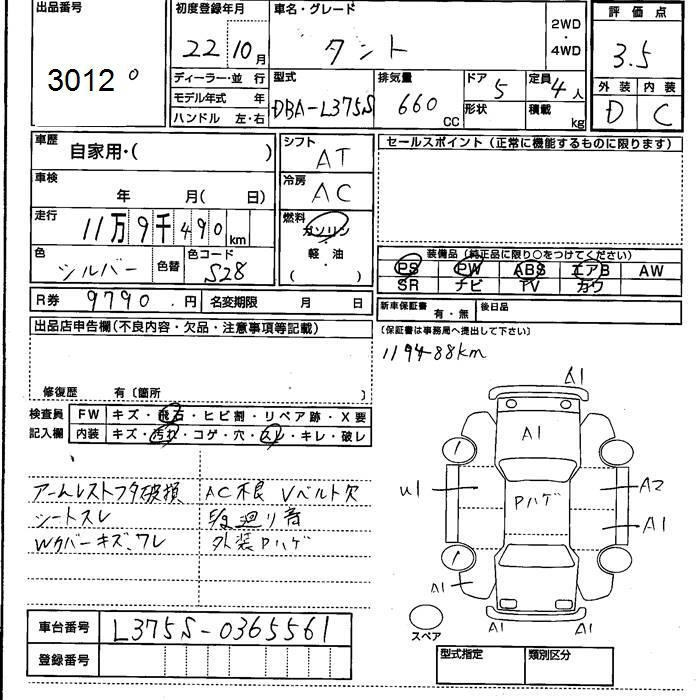 出品番号
3012 0
初度登録年月
22 10月
車名・グレード
タント
2WD
・
4WD
評価点
3.5
外装 内装
D C
ディーラー・並 行
モデル年式 年
ハンドル 左・右
型式
DBA-L375S
排気量
660
CC
ドア
5
形状
定員
4人
積載
kg
車歴
自家用・( )
車検
年 月( 日)
走行
11万9千490km
色
シルバー
色替
色コード
S28
シフト
AT
冷房
AC
燃料
ガソリン
・
軽 油
・
( )
セールスポイント(正常に機能するものに限ります)
装備品(純正品に限り○をつけてください)
PS PW ABS エアB AW
SR ナビ TV カワ
R券 9790.円 名変期限 月 日
新車保証書 有・無 後日品
(保証書は事務局へ提出して下さい)
出品店申告欄(不良内容・欠品・注意事項等記載)
119488km
修復歴 有(箇所 )
検査員
記入欄
FW キズ・飛石・ヒビ割・リペア跡・X要
内装 キズ・汚れ・コゲ・穴・スレ・キレ・破レ
アームレストフタ破損 AC不良 Vベルト欠
シートスレ 廻り音
Wカバーキズ、ワレ 外装Pハゲ
A1
A1
U1
Pハゲ
A2
A1
A1
A1
A1
スペア
車台番号 L375S-0365561
登録番号
型式指定 類別区分